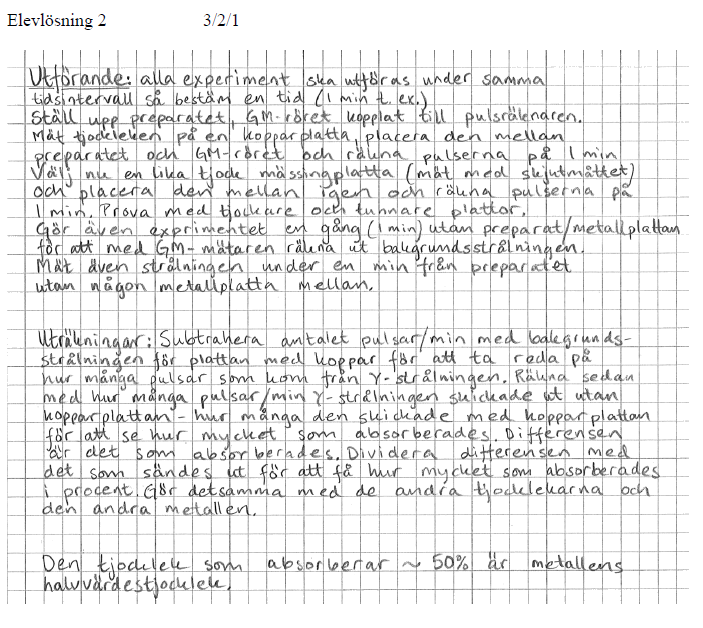 Elevlösning 2 3/2/1
Utförande: alla experiment ska utföras under samma
tidsintervall så bestäm en tid (1 min t. ex.)
Ställ upp preparatet, GM-röret kopplat till pulsräknaren.
Mät tjockleken på en kopparplatta, placera den mellan
preparatet och GM-röret och räkna pulserna på 1 min
Välj nu en lika tjock mässingplatta (mät med skjutmåttet)
och placera den mellan igen och räkna pulserna på
1 min. Prova med tjockare och tunnare plattor.
Gör även exprimentet en gång (1 min) utan preparat/metallplattan
för att med GM-mätaren räkna ut bakgrundsstrålningen.
Mät även strålningen under en min från preparatet
utan någon metallplatta mellan.
Uträkningar: Subtrahera antalet pulsar/min med bakgrunds-
strålningen för plattan med koppar för att ta reda på
hur många pulsar som kom från γ-strålningen. Räkna sedan
med hur många pulsar/min γ-strålningen skickade ut utan
kopparplattan - hur många den skickade med kopparplattan
för att se hur mycket som absorberades. Differensen
är det som absorberades. Dividera differensen med
det som sändes ut för att få hur mycket som absorberades
i procent. Gör detsamma med de andra tjocklekarna och
den andra metallen.
Den tjocklek som absorberar ~ 50% är metallens
halvvärdestjocklek.